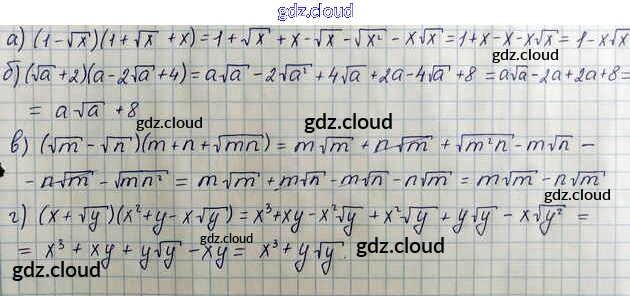 gdz.cloud
а) (1-√x)(1+√x +x)=1+√x+x-√x-√x²-x√x=1+x-x-x√x=1-x√x
gdz.cloud
б) (√a+2)(a-2√a+4)=a√a-2√a²+4√a+2a-4√a+8=a√a-2a+2a+8=
= a√a+8
gdz.cloud gdz.cloud
в) (√m-√n)(m+n+√mn)=m√m+n√m+√m²n-m√n-
-n√m-√mn²=m√m+m√n-m√n-n√m=m√m-n√m
gdz.cloud gdz.cloud
г) (x+√y)(x²+y-x√y)=x³+xy-x²√y+x²√y+y√y-x√y²=
= x³+xy+y√y-xy= x³+y√y.
gdz.cloud gdz.cloud gdz.cloud